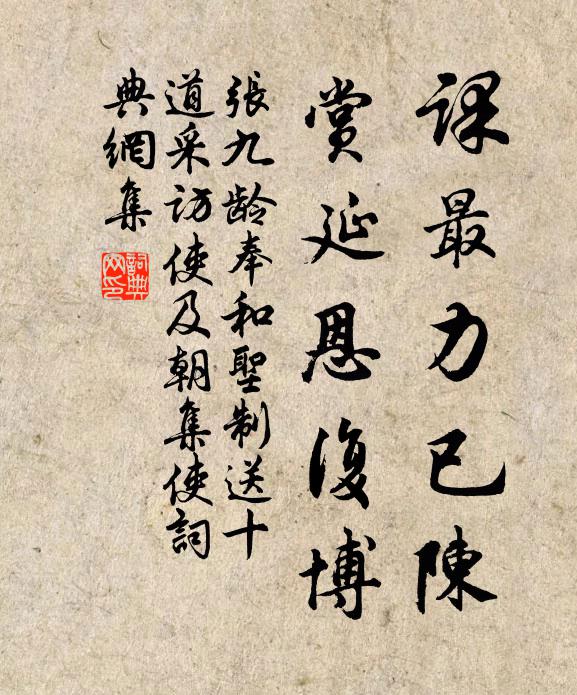 課最力已陳
賞延恩復博
張九齡奉和聖制送十
道采訪使及朝集使詞
典網集
詞典
网印